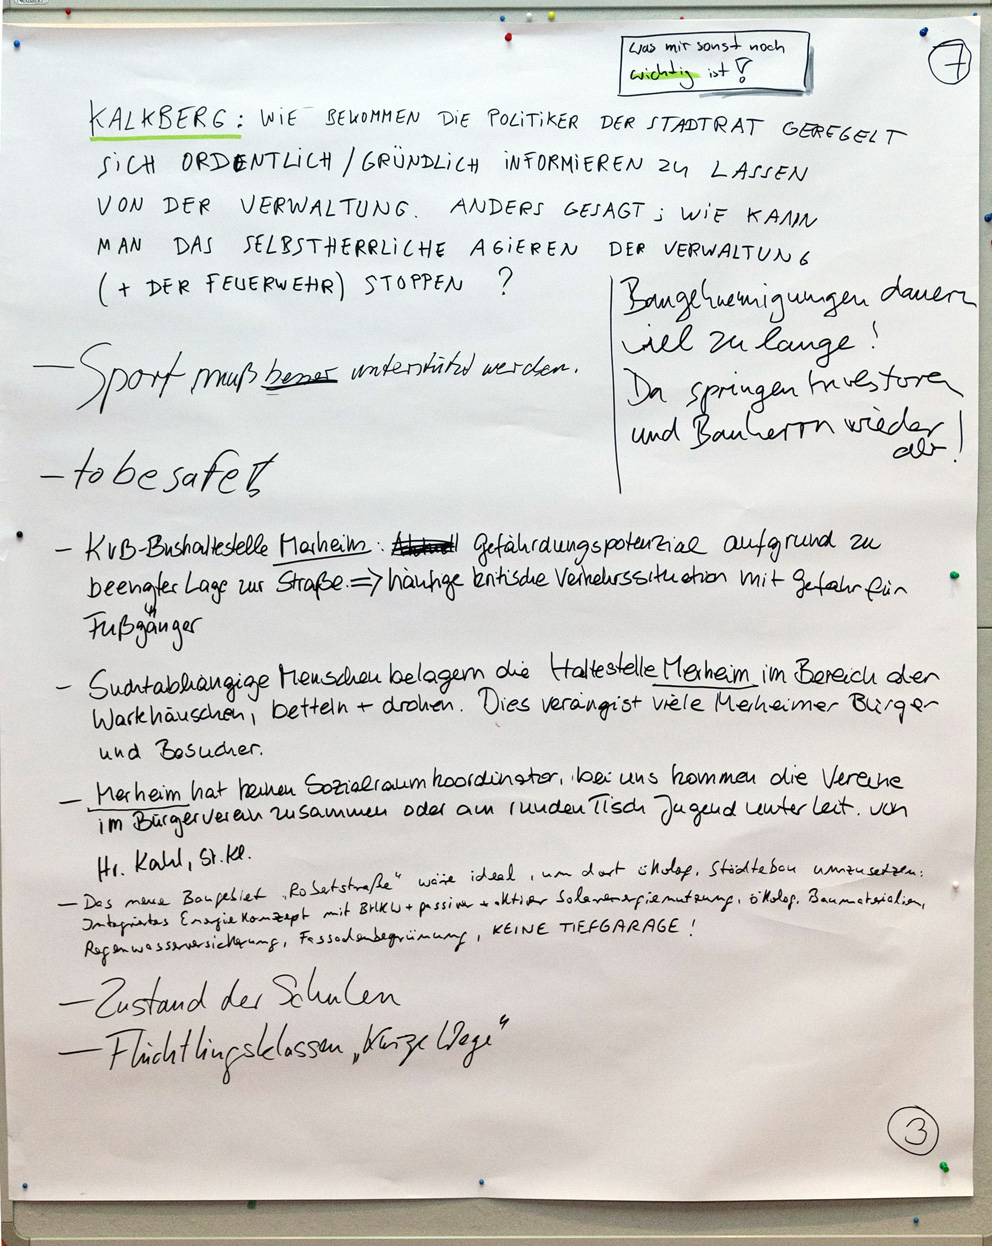 Was mir sonst noch
wichtig ist!
7
KALKBERG: WIE BEKOMMEN DIE POLITIKER DER STADTRAT GEREGELT
SICH ORDENTLICH / GRÜNDLICH INFORMIEREN ZU LASSEN
VON DER VERWALTUNG. ANDERS GESAGT; WIE KANN
MAN DAS SELBSTHERRLICHE AGIEREN DER VERWALTUNG
(+ DER FEUERWEHR) STOPPEN ?
Baugenehmigungen dauern
viel zu lange!
Da springen Investoren
und Bauherrn wieder
ab!
— Sport muß besser unterstützt werden.
— to be safe!
— KVB-Bushaltestelle Merheim: Gefährdungspotenzial aufgrund zu
beengter Lage zur Straße. => häufige kritische Verkehrssituation mit Gefahr für
Fußgänger
— Suchtabhängige Menschen belagern die Haltestelle Merheim im Bereich der
Wartehäuschen, betteln + drohen. Dies verängist viele Merheimer Bürger
und Besucher.
— Merheim hat keinen Sozialraumkoordinator, bei uns kommen die Vereine
im Bürgerverein zusammen oder am runden Tisch Jugend unter Leit. von
Hr. Kahl, St.Kl.
— Das neue Baugebiet „Robertstraße“ wäre ideal, um dort ökolog. Städtebau umzusetzen:
Integriertes Energiekonzept mit BHKW + passiver + aktiver Solarenergienutzung, ökolog. Baumaterialien,
Regenwasserversickerung, Fassadenbegrünung, KEINE TIEFGARAGE!
— Zustand der Schulen
— Flüchtlingsklassen „Kurze Wege“
3